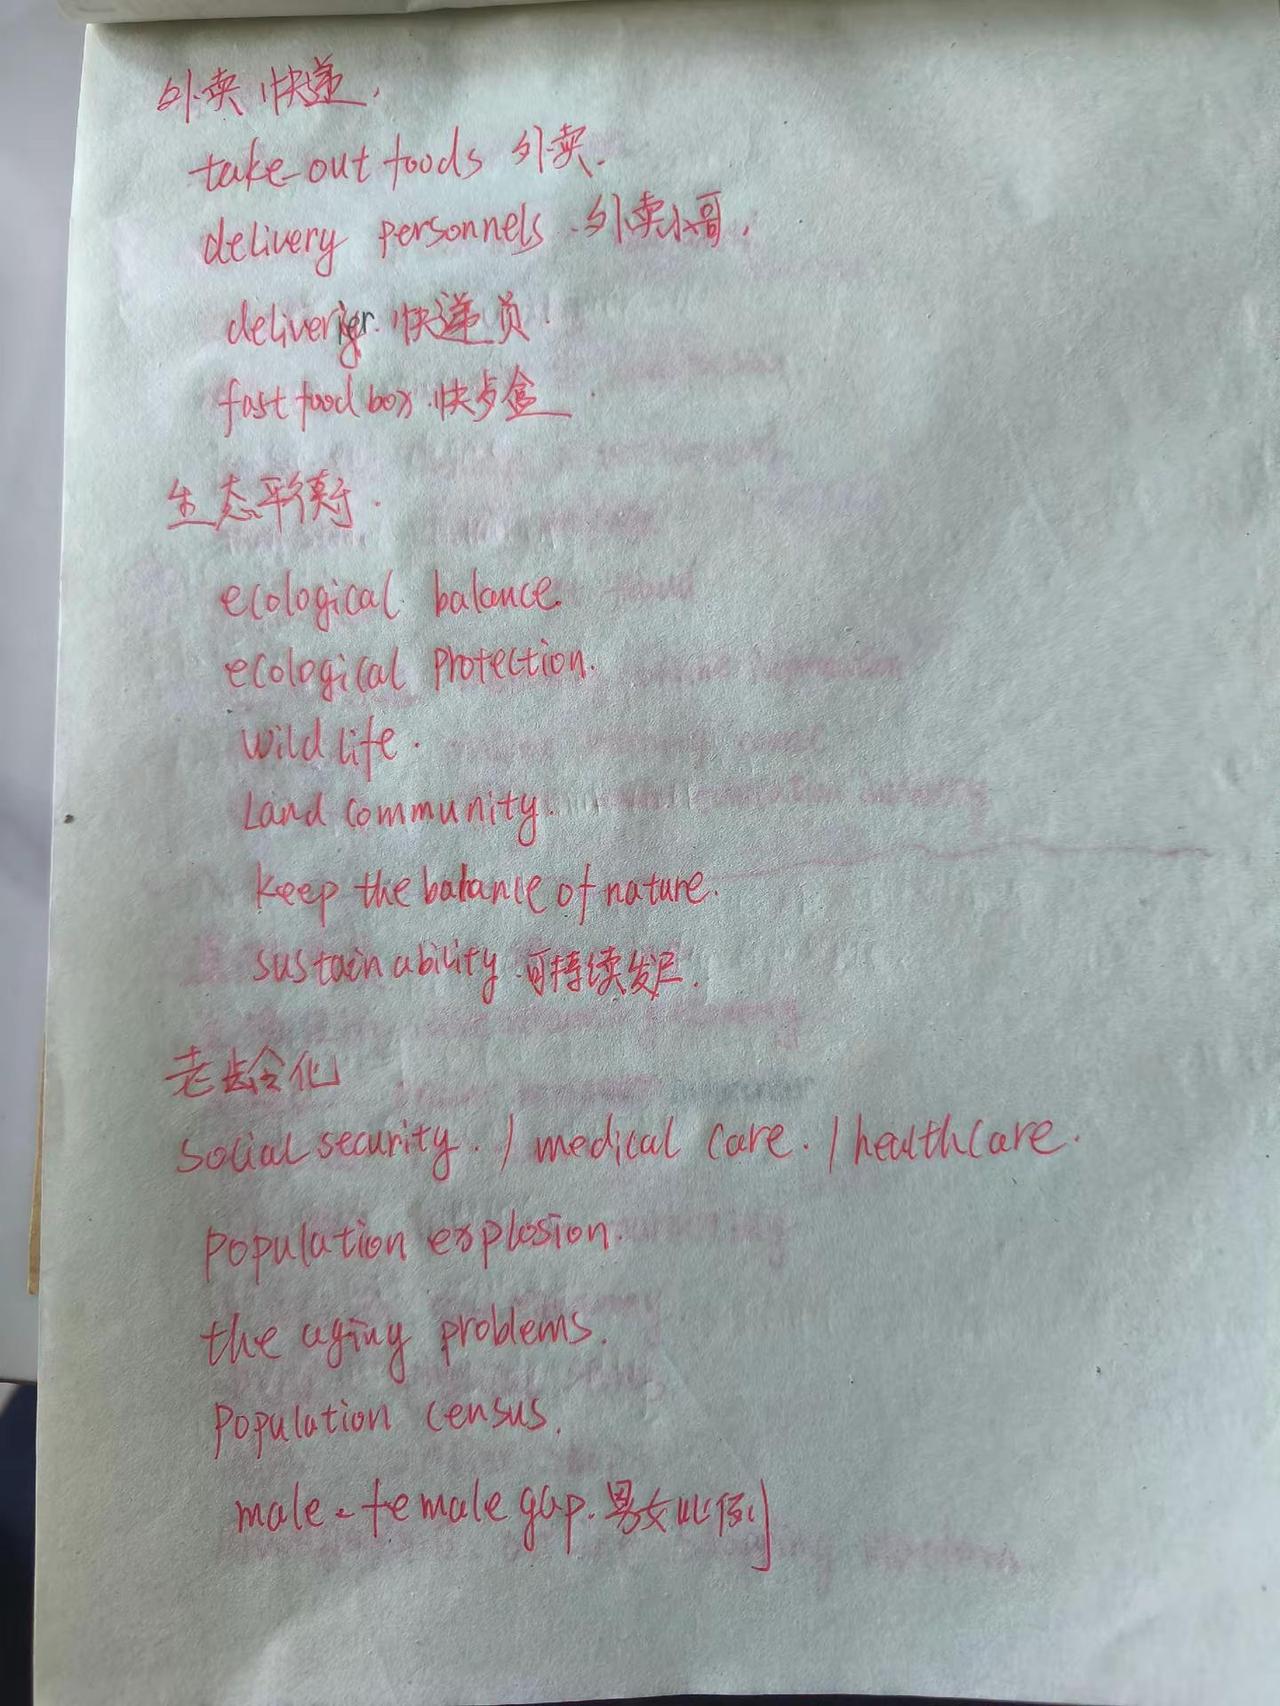 外卖 快递.
take-out foods 外卖.
delivery personnels. 外卖小哥.
deliverier. 快递员.
fast food box. 快歺盒.
生态平衡.
ecological balance.
ecological protection.
wild life.
Land community.
keep the balance of nature.
sustainability. 可持续发展.
老龄化
social security. / medical care. / healthcare.
population explosion.
the aging problems.
Population census.
male-female gap. 男女比例